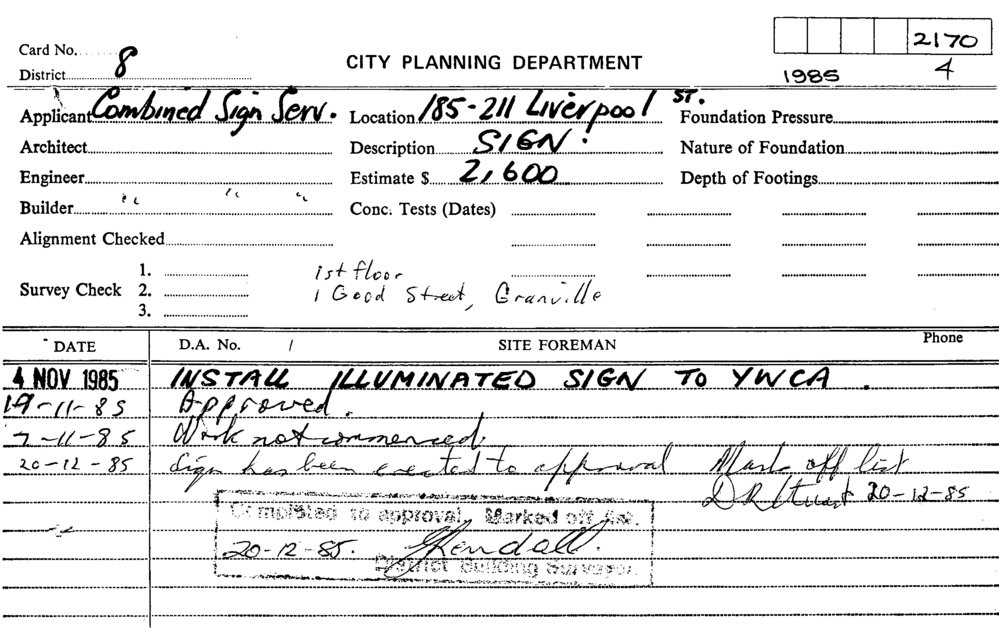 Card No. 8 2170
District CITY PLANNING DEPARTMENT 1985 4
Applicant Combined Sign Serv. Location 185-211 Liverpool ST. Foundation Pressure
Architect Description SIGN. Nature of Foundation
Engineer Estimate $ 2,600 Depth of Footings
Builder " " " Conc. Tests (Dates)
Alignment Checked
1. 1st floor
Survey Check 2. 1 Good Street, Granville
3.
DATE D.A. No. / SITE FOREMAN Phone
4 NOV 1985 INSTALL ILLUMINATED SIGN TO YWCA.
19-11-85 Approved.
7-11-85 Work not commenced
20-12-85 Sign has been erected to approval Mark off list
20-12-85
Completed to approval. Marked off list.
20-12-85. Kendall.
District Building Surveyor.